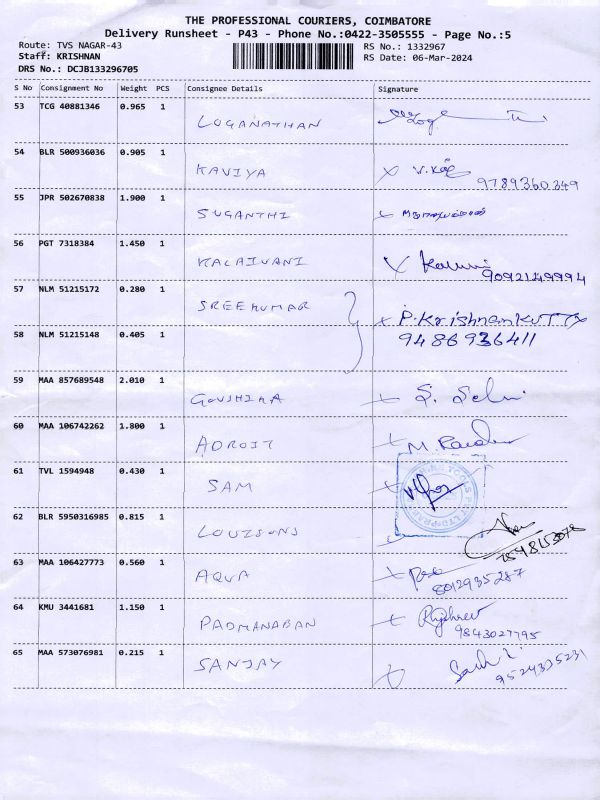 THE PROFESSIONAL COURIERS, COIMBATORE
Delivery Runsheet - P43 - Phone No.:0422-3505555 - Page No.:5
Route: TVS NAGAR-43 RS No.: 1332967
Staff: KRISHNAN RS Date: 06-Mar-2024
DRS No.: DCJB133296705
S No Consignment No Weight PCS Consignee Details Signature
53 TCG 40881346 0.965 1
LOGANATHAN
54 BLR 500936036 0.905 1
KAVIYA
9789360349
55 JPR 502670838 1.900 1
SUGANTHI
56 PGT 7318384 1.450 1
KALAIVANI
9092149994
57 NLM 51215172 0.280 1
SREEKUMAR P.KrishnanKuTTy
58 NLM 51215148 0.405 1 9486936411
59 MAA 857689548 2.010 1
GOUSHIKA S. Selvi
60 MAA 106742262 1.800 1
ADROIT
61 TVL 1594948 0.430 1
SAM
62 BLR 5950316985 0.815 1
LOUISONS
63 MAA 106427773 0.560 1
AQUA
8012935287
64 KMU 3441681 1.150 1
PADMANABAN
9843027795
65 MAA 573076981 0.215 1
SANJAY
9524335231